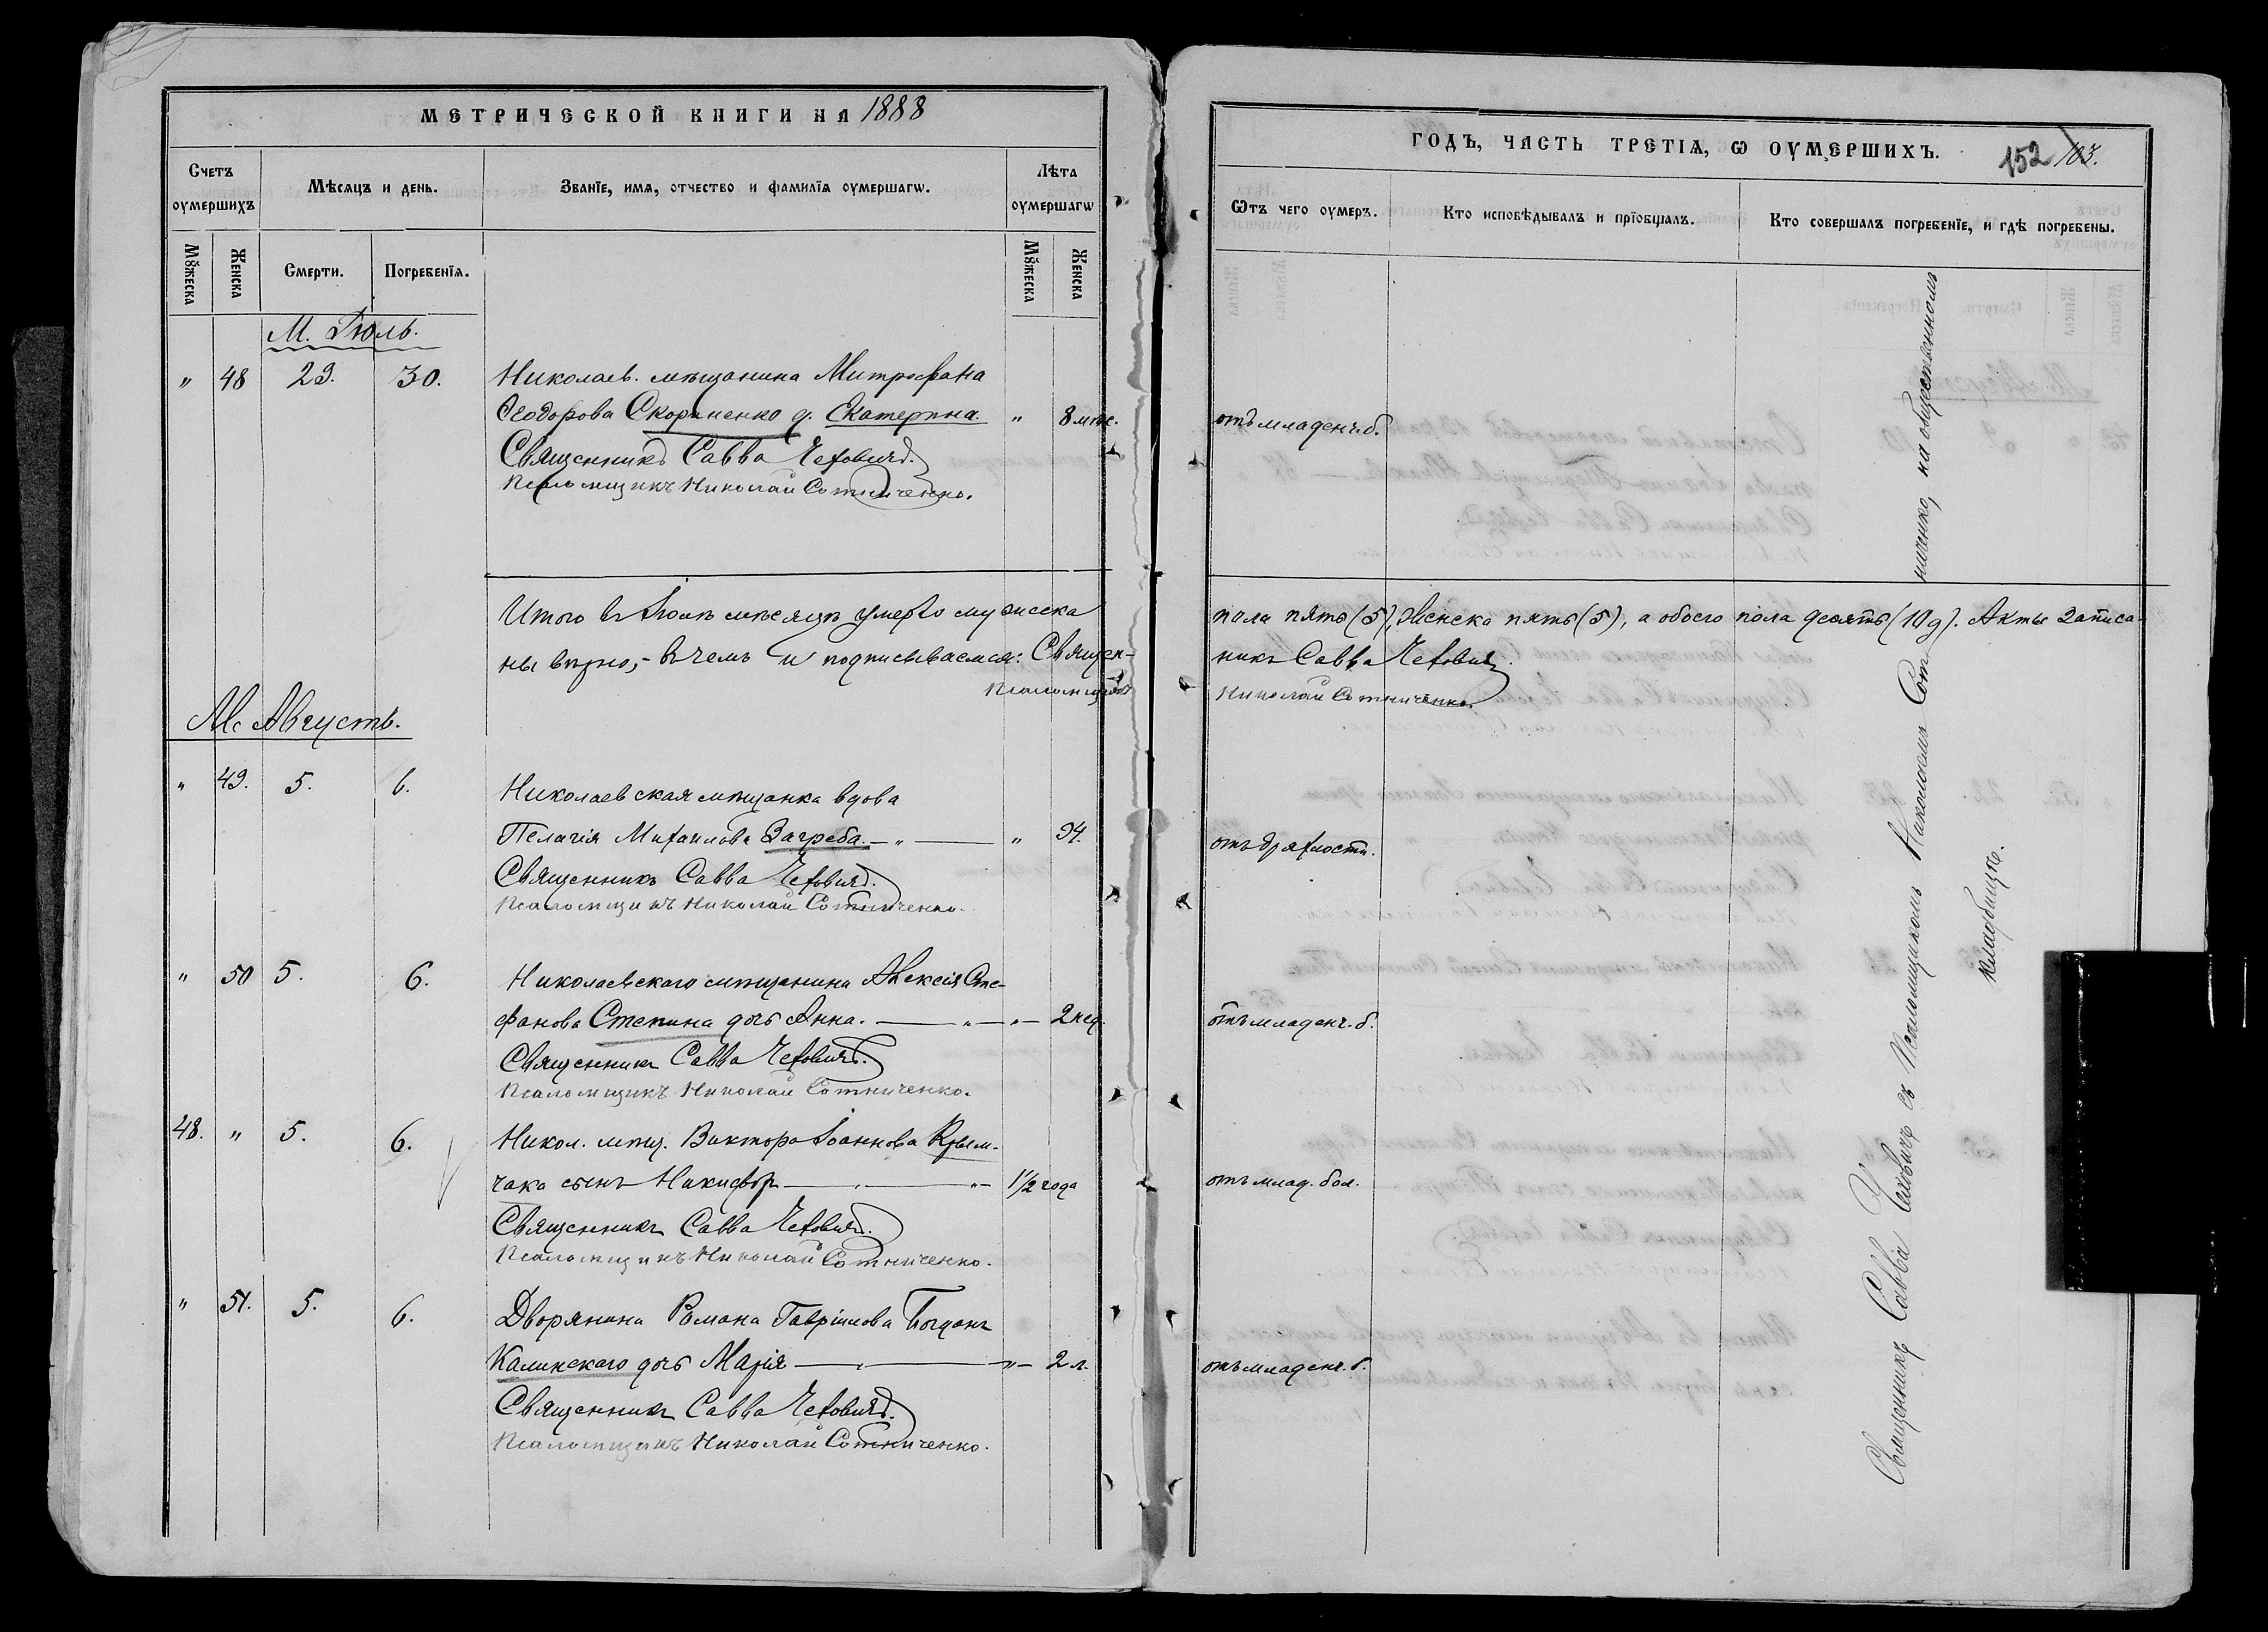 МЕТРИЧЕСКОЙ КНИГИ НА 1888
Счетъ оумершихъ
Мѣсяцъ и день.
Званїе, имѧ, отчество и фамилїѧ оумершагѡ.
Лѣта оумершагѡ
Мꙋжеска
Женска
Смерти.
Погребенїѧ.
Мꙋжеска
Женска
М. Іюль.
" 48 29. 30. Николаев. мѣщанина Митрофана
Ѳеодорова Скориненко д. Екатерина. " 8 мѣс.
Священникъ Савва Чеховичъ.
Псаломщикъ Николай Сотниченко.
Итого въ Іюлѣ мѣсяцѣ умерло мужеска
ны вѣрно,- въ чемъ и подписываемся: Священ-
Псаломщикъ
М. Августъ.
" 49. 5. 6. Николаевская мѣщанка вдова
Пелагія Михаилова Загреба. — " — " 94.
Священникъ Савва Чеховичъ.
Псаломщикъ Николай Сотниченко.
" 50 5. 6. Николаевскаго мѣщанина Алексія Сте-
фанова Степина дочь Анна. — " — " — 2 нед.
Священникъ Савва Чеховичъ.
Псаломщикъ Николай Сотниченко.
48. " 5. 6. Никол. мѣщ. Виктора Іоаннова Крым-
чака сынъ Никифоръ — " — " — 1 1/2 года
Священникъ Савва Чеховичъ.
Псаломщикъ Николай Сотниченко.
" 51. 5. 6. Дворянина Романа Гавріилова Богданъ
Калинскаго дочь Марія — " — " — 2 л.
Священникъ Савва Чеховичъ.
Псаломщикъ Николай Сотниченко.
ГОДЪ, ЧАСТЬ ТРЕТІѦ, Ѡ ОУМЕРШИХЪ.
152 103.
Ѿтъ чего оумеръ.
Кто исповѣдывалъ и прїобщалъ.
Кто совершалъ погребенїе, и гдѣ погребены.
отъ младенч. б.
пола пять (5), женска пять (5), а обоего пола десять (10 д). Акты записа-
никъ Савва Чеховичъ
Николай Сотниченко.
отъ дряхлости.
отъ младенч. б.
отъ млад. бол.
отъ младенч. б.
Священникъ Савва Чеховичъ съ Псаломщикомъ Николаемъ Сотниченко, на общественномъ
кладбищѣ.